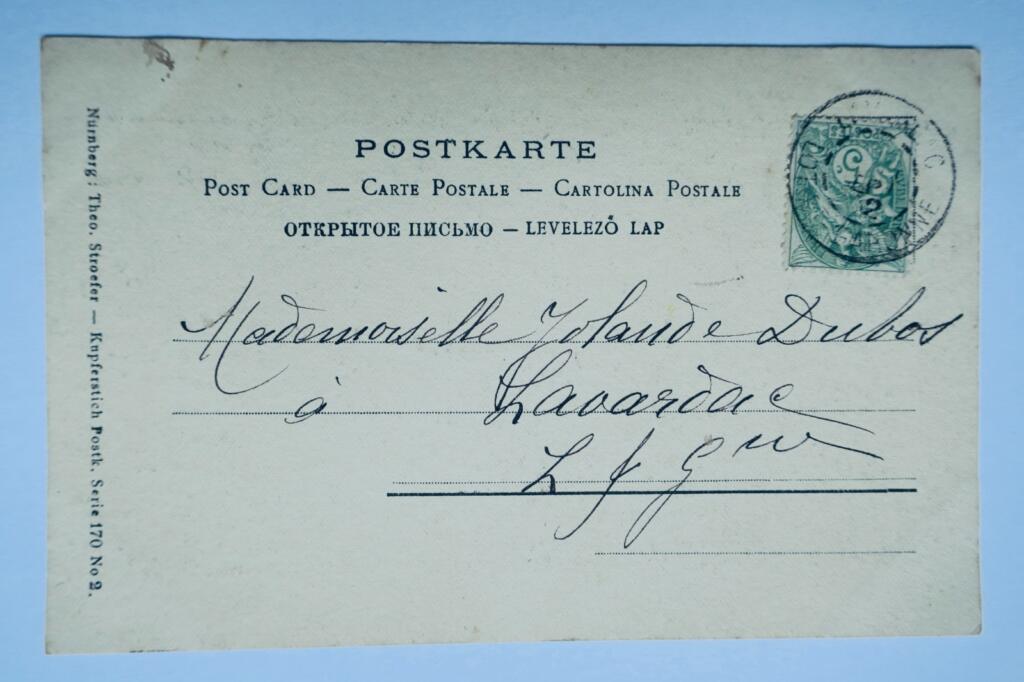 POSTKARTE
POST CARD — CARTE POSTALE — CARTOLINA POSTALE
ОТКРЫТОЕ ПИСЬМО — LEVELEZŐ LAP
Mademoiselle Yolande Dubos
à Lavardac
L & Gne
Nürnberg: Theo. Stroefer — Kupferstich Postk. Serie 170 No 2.
5
LAVARDAC
LOT
GARONNE